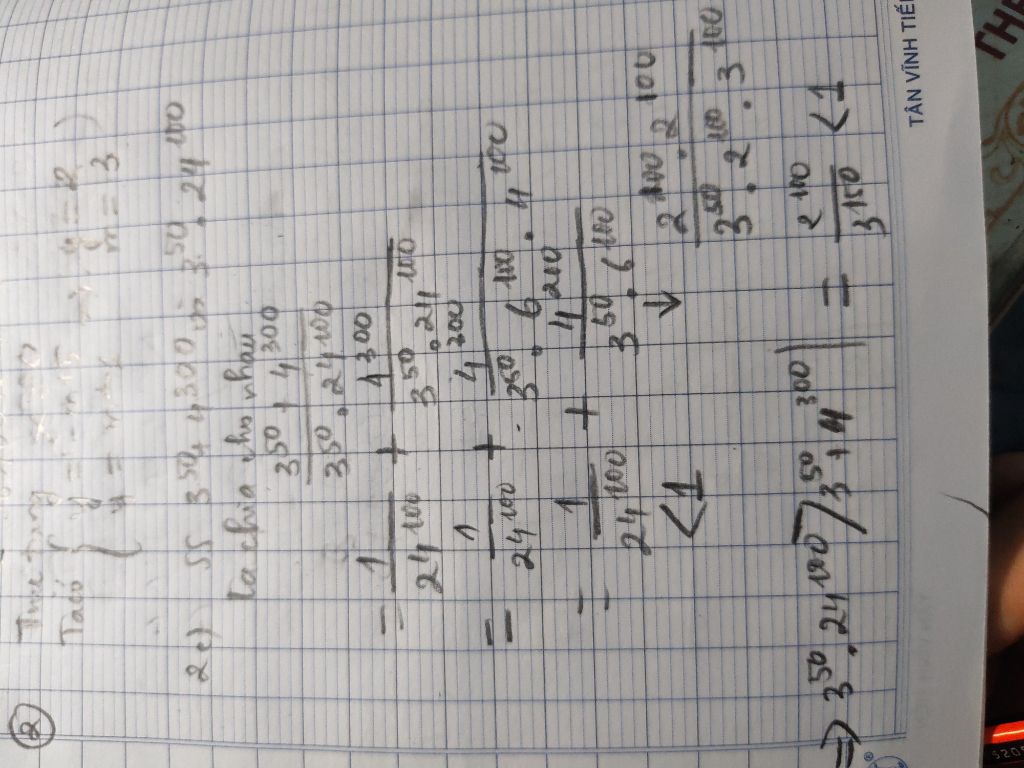 ②
Ta có
2c) SS 3^50 + 4^300 và 3^50 . 24^100
ta chia cho nhau
3^50 + 4^300 / 3^50 . 24^100
= 1 / 24^100 + 4^300 / 3^50 . 24^100
= 1 / 24^100 + 4^300 / 3^50 . 6^100 . 4^100
= 1 / 24^100 + 4^200 / 3^50 . 6^100
< 1 ↓ 2^100 . 2^100 / 3^50 . 2^100 . 3^100
⇒ 3^50 . 24^100 > 3^50 + 4^300 | = 2^100 / 3^150 < 1
TÂN VĨNH TIẾ
THE